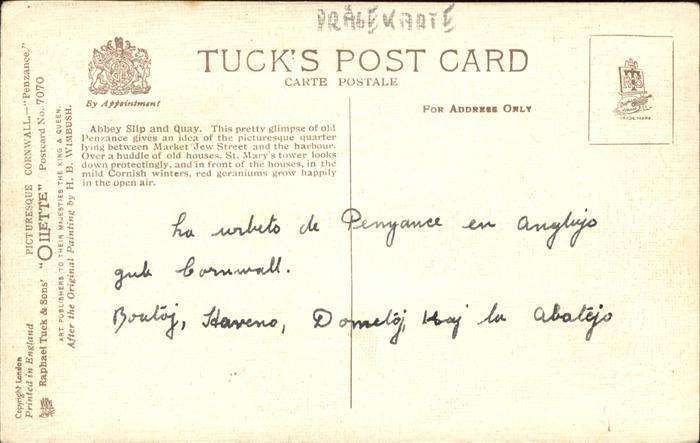 PRÄGEKARTE
TUCK'S POST CARD
CARTE POSTALE
By Appointment
FOR ADDRESS ONLY
TRADE MARK
Abbey Slip and Quay. This pretty glimpse of old
Penzance gives an idea of the picturesque quarter
lying between Market Jew Street and the harbour.
Over a huddle of old houses, St. Mary's tower looks
down protectingly, and in front of the houses, in the
mild Cornish winters, red geraniums grow happily
in the open air.
La urbeto de Penzance en Anglujo
gub Cornwall.
Boatoj, Haveno, Dometoj, kaj la Abatejo
PICTURESQUE CORNWALL.—"Penzance."
Raphael Tuck & Sons' "OILETTE" Postcard No. 7070
ART PUBLISHERS TO THEIR MAJESTIES THE KING & QUEEN.
After the Original Painting by H. B. WIMBUSH.
Copyright London
Printed in England